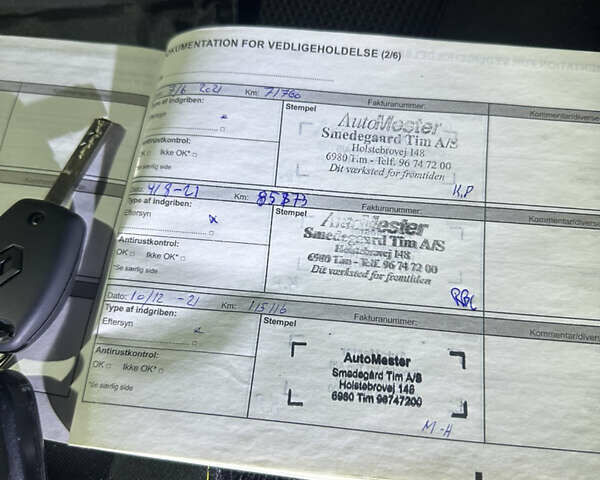 DOKUMENTATION FOR VEDLIGEHOLDELSE (2/6)
9/6 2021 Km: 71760
Fakturanummer:
Kommentar/diverse
Type af indgriben:
Stempel
Eftersyn
Antirustkontrol:
OK Ikke OK*
*Se særlig side
AutoMester
Smedegaard Tim A/S
Holstebrovej 148
6980 Tim - Telf. 96 74 72 00
Dit værksted for fremtiden
K.P
Dato: 4/8-21 Km:
Fakturanummer:
Kommentar/diverse
Type af indgriben:
Stempel
Eftersyn
Antirustkontrol:
OK Ikke OK*
*Se særlig side
AutoMester
Smedegaard Tim A/S
Holstebrovej 148
6980 Tim - Telf. 96 74 72 00
Dit værksted for fremtiden
Dato: 10/12 -21 Km: 115116
Fakturanummer:
Kommentar/diverse
Type af indgriben:
Stempel
Eftersyn
Antirustkontrol:
OK Ikke OK*
*Se særlig side
AutoMester
Smedegård Tim A/S
Holstebrovej 148
6980 Tim 96747200
M-H